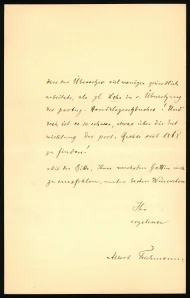 denn der Übersetzer viel weniger gründlich
arbeitete, als z. B. Lehr in d. Übersetzung
des portug. Handelsgesetzbuches! Und
doch ist es so schwer, etwas über die Ent
wicklung des port. Rechts seit 1867
zu finden!
Mit der Bitte, Ihrer verehrten Gattin mich
zu empfehlen, und besten Wünschen
Ihr
ergebener
Albert